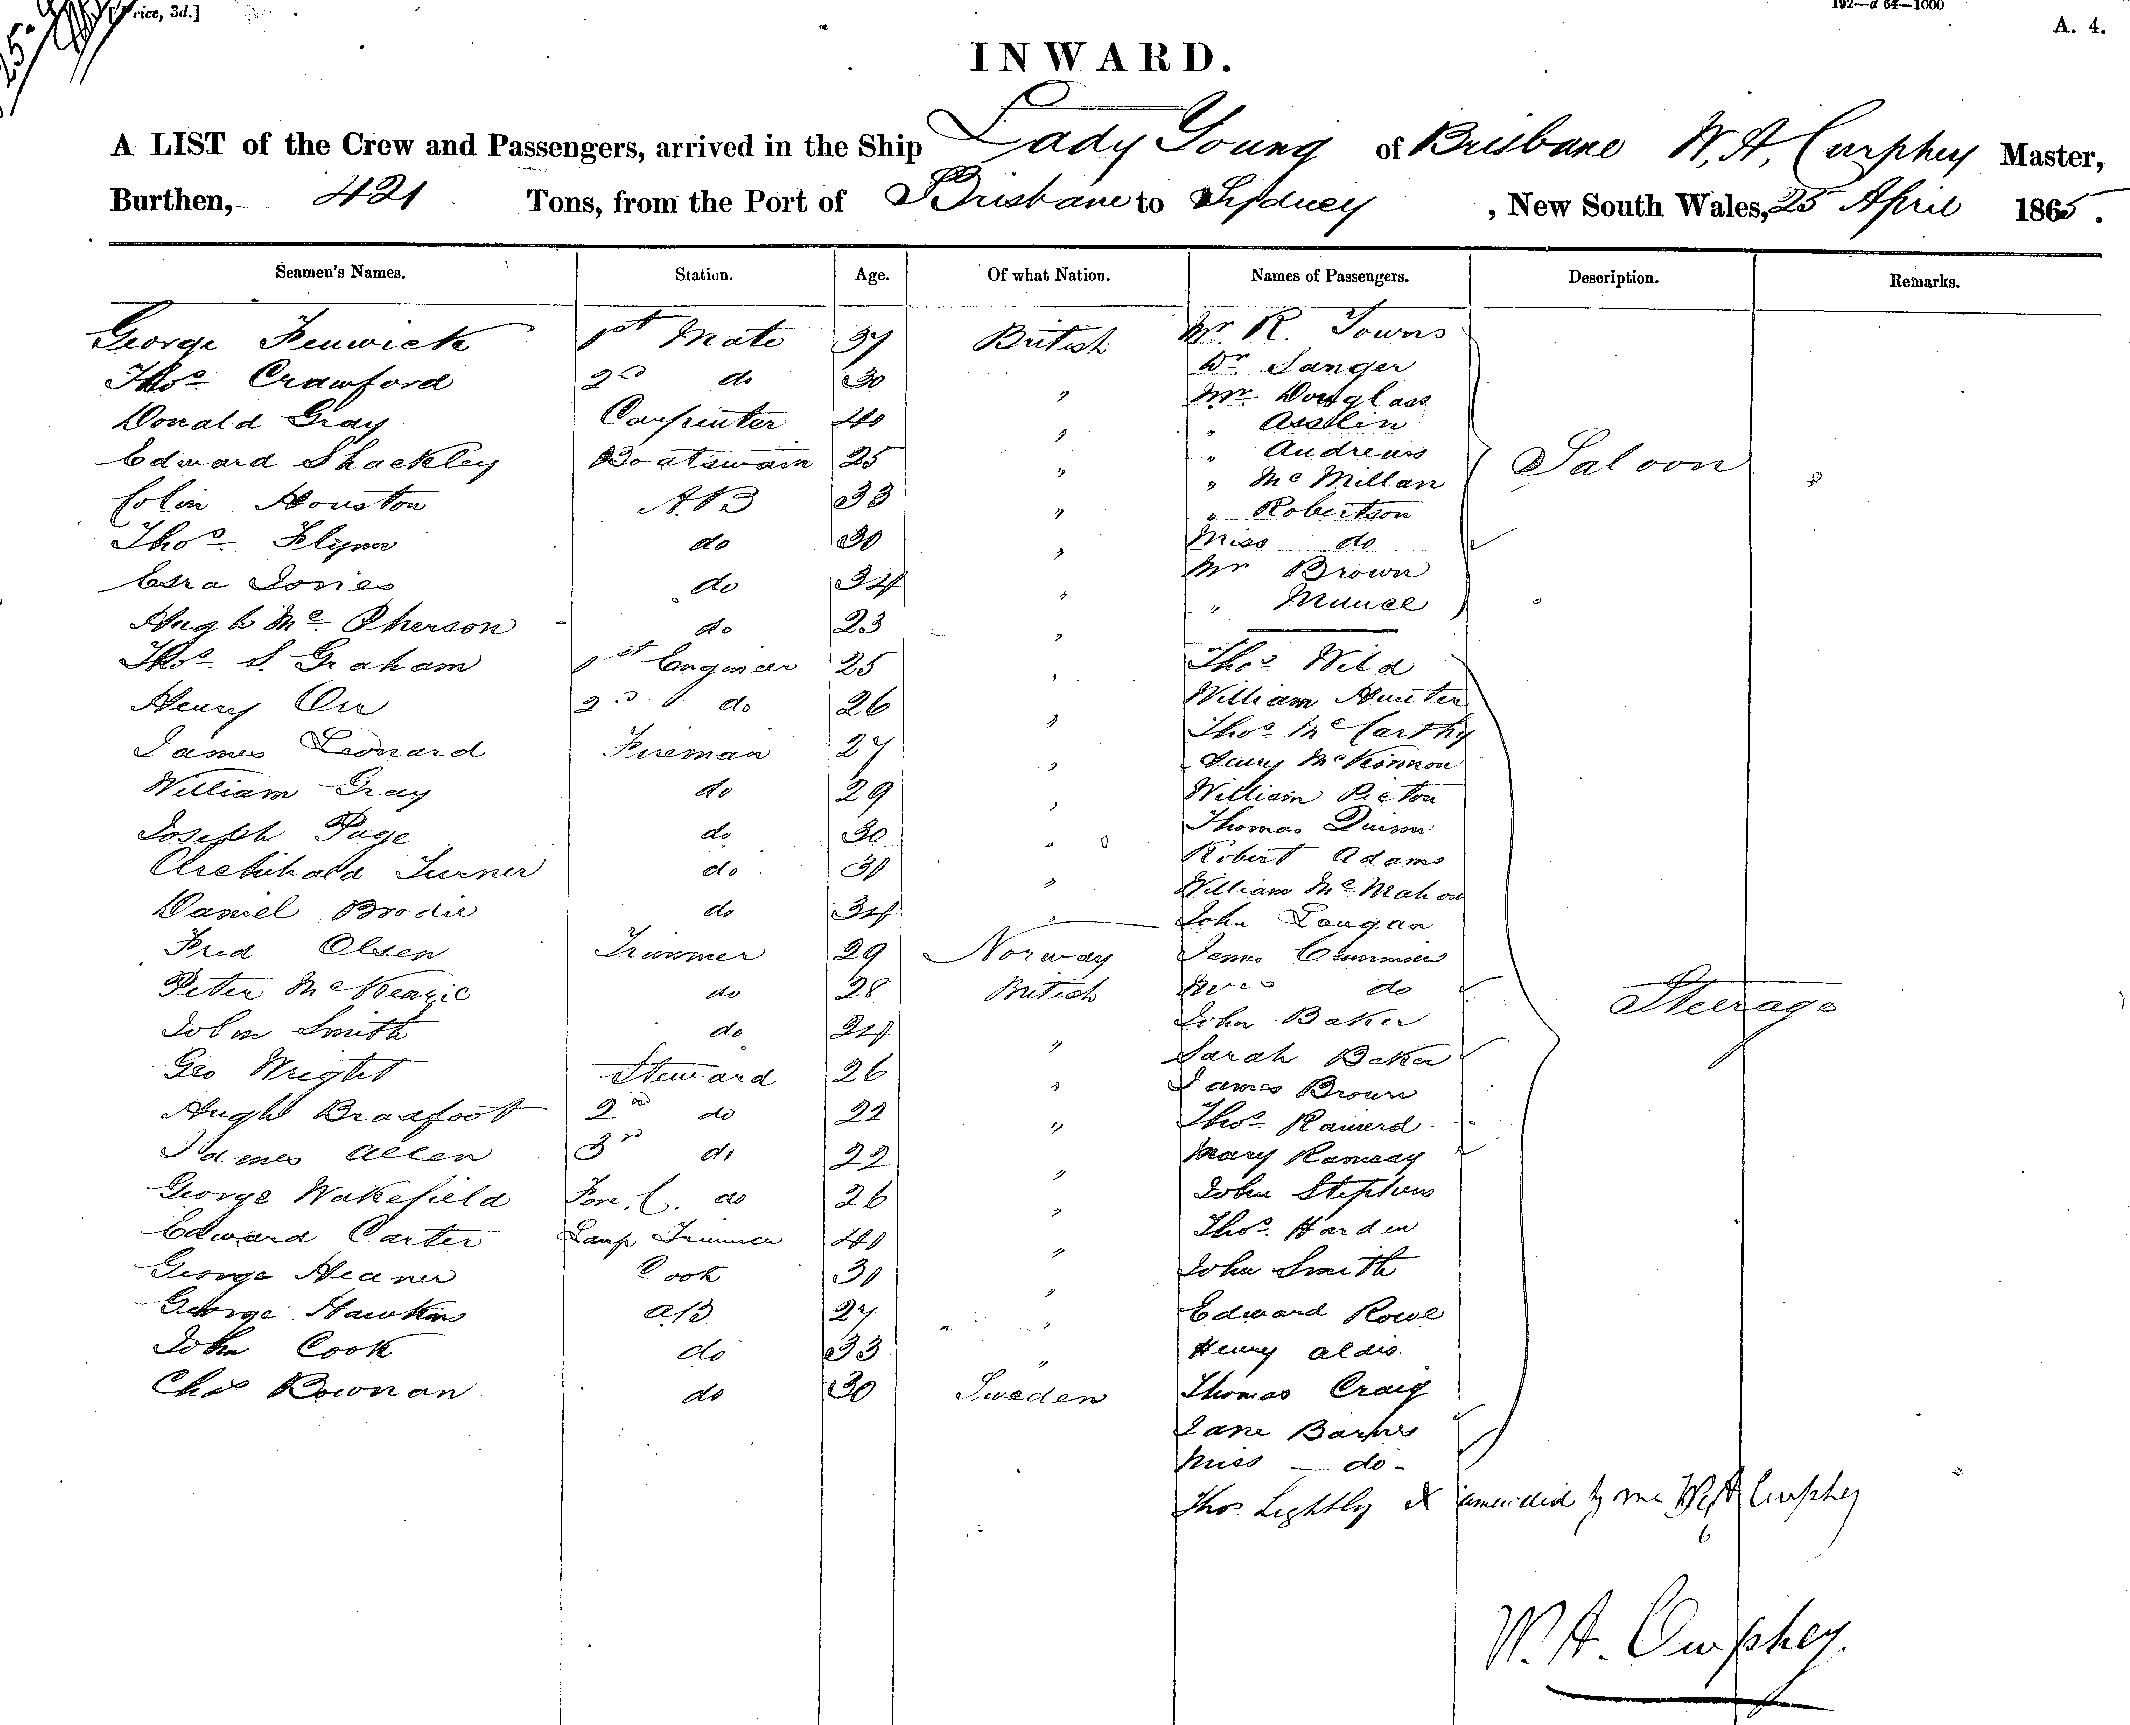 Price, 3d.]
192—a 64—1000
A. 4.
INWARD.
A LIST of the Crew and Passengers, arrived in the Ship Lady Young of Brisbane W. A. Curphey Master,
Burthen, 421 Tons, from the Port of Brisbane to Sydney, New South Wales, 25 April 1865.
Seamen's Names. Station. Age. Of what Nation. Names of Passengers. Description. Remarks.
George Fenwick 1st Mate 37 British Mr R. Towns
Thos Crawford 2d do 30 " Dr Sanger
Donald Gray Carpenter 40 " Mr Douglass
" Asslin
Edward Shackley Boatswain 25 " " Andrews
Saloon
" McMillan
Colin Houston A.B 33 " " Robertson
Thos Flynn do 30 " Miss do
Ezra Jones do 34 " Mr Brown
" Munce
Hugh Mc Pherson do 23 "
Thos S. Graham 1st Engineer 25 " Thos Wild
Henry Orr 2d do 26 " William Hunter
James Leonard Fireman 27 " Thos McCarthy
Henry McKinnon
William Gray do 29 " William Picton
Joseph Page do 30 " Thomas Quinn
Robert Adams
Archibald Turner do 30 " William McMahon
Daniel Brodie do 34 " John Langan
Fred Olsen Trimmer 29 Norway James
Peter McKenzie do 28 British do
Steerage
John Smith do 24 " John Baker
Sarah Baker
Geo Wright Steward 26 " James Brown
Hugh Bradfoot 2d do 22 " Thos
James Allen 3rd do 22 " Mary Ramsay
George Wakefield Fore. C. do 26 " John Stephens
Edward Carter Lamp Trimmer 40 " Thos. Harden
George Cook 30 " John Smith
George Hawkins AB 27 " Edward Rowe
John Cook do 33 " Henry Aldis.
Chas Bownan do 30 Sweden Thomas Craig
Jane Barnes
Miss — do -
Thos Lightly X amended by me W A Curphey
W. A. Curphey.